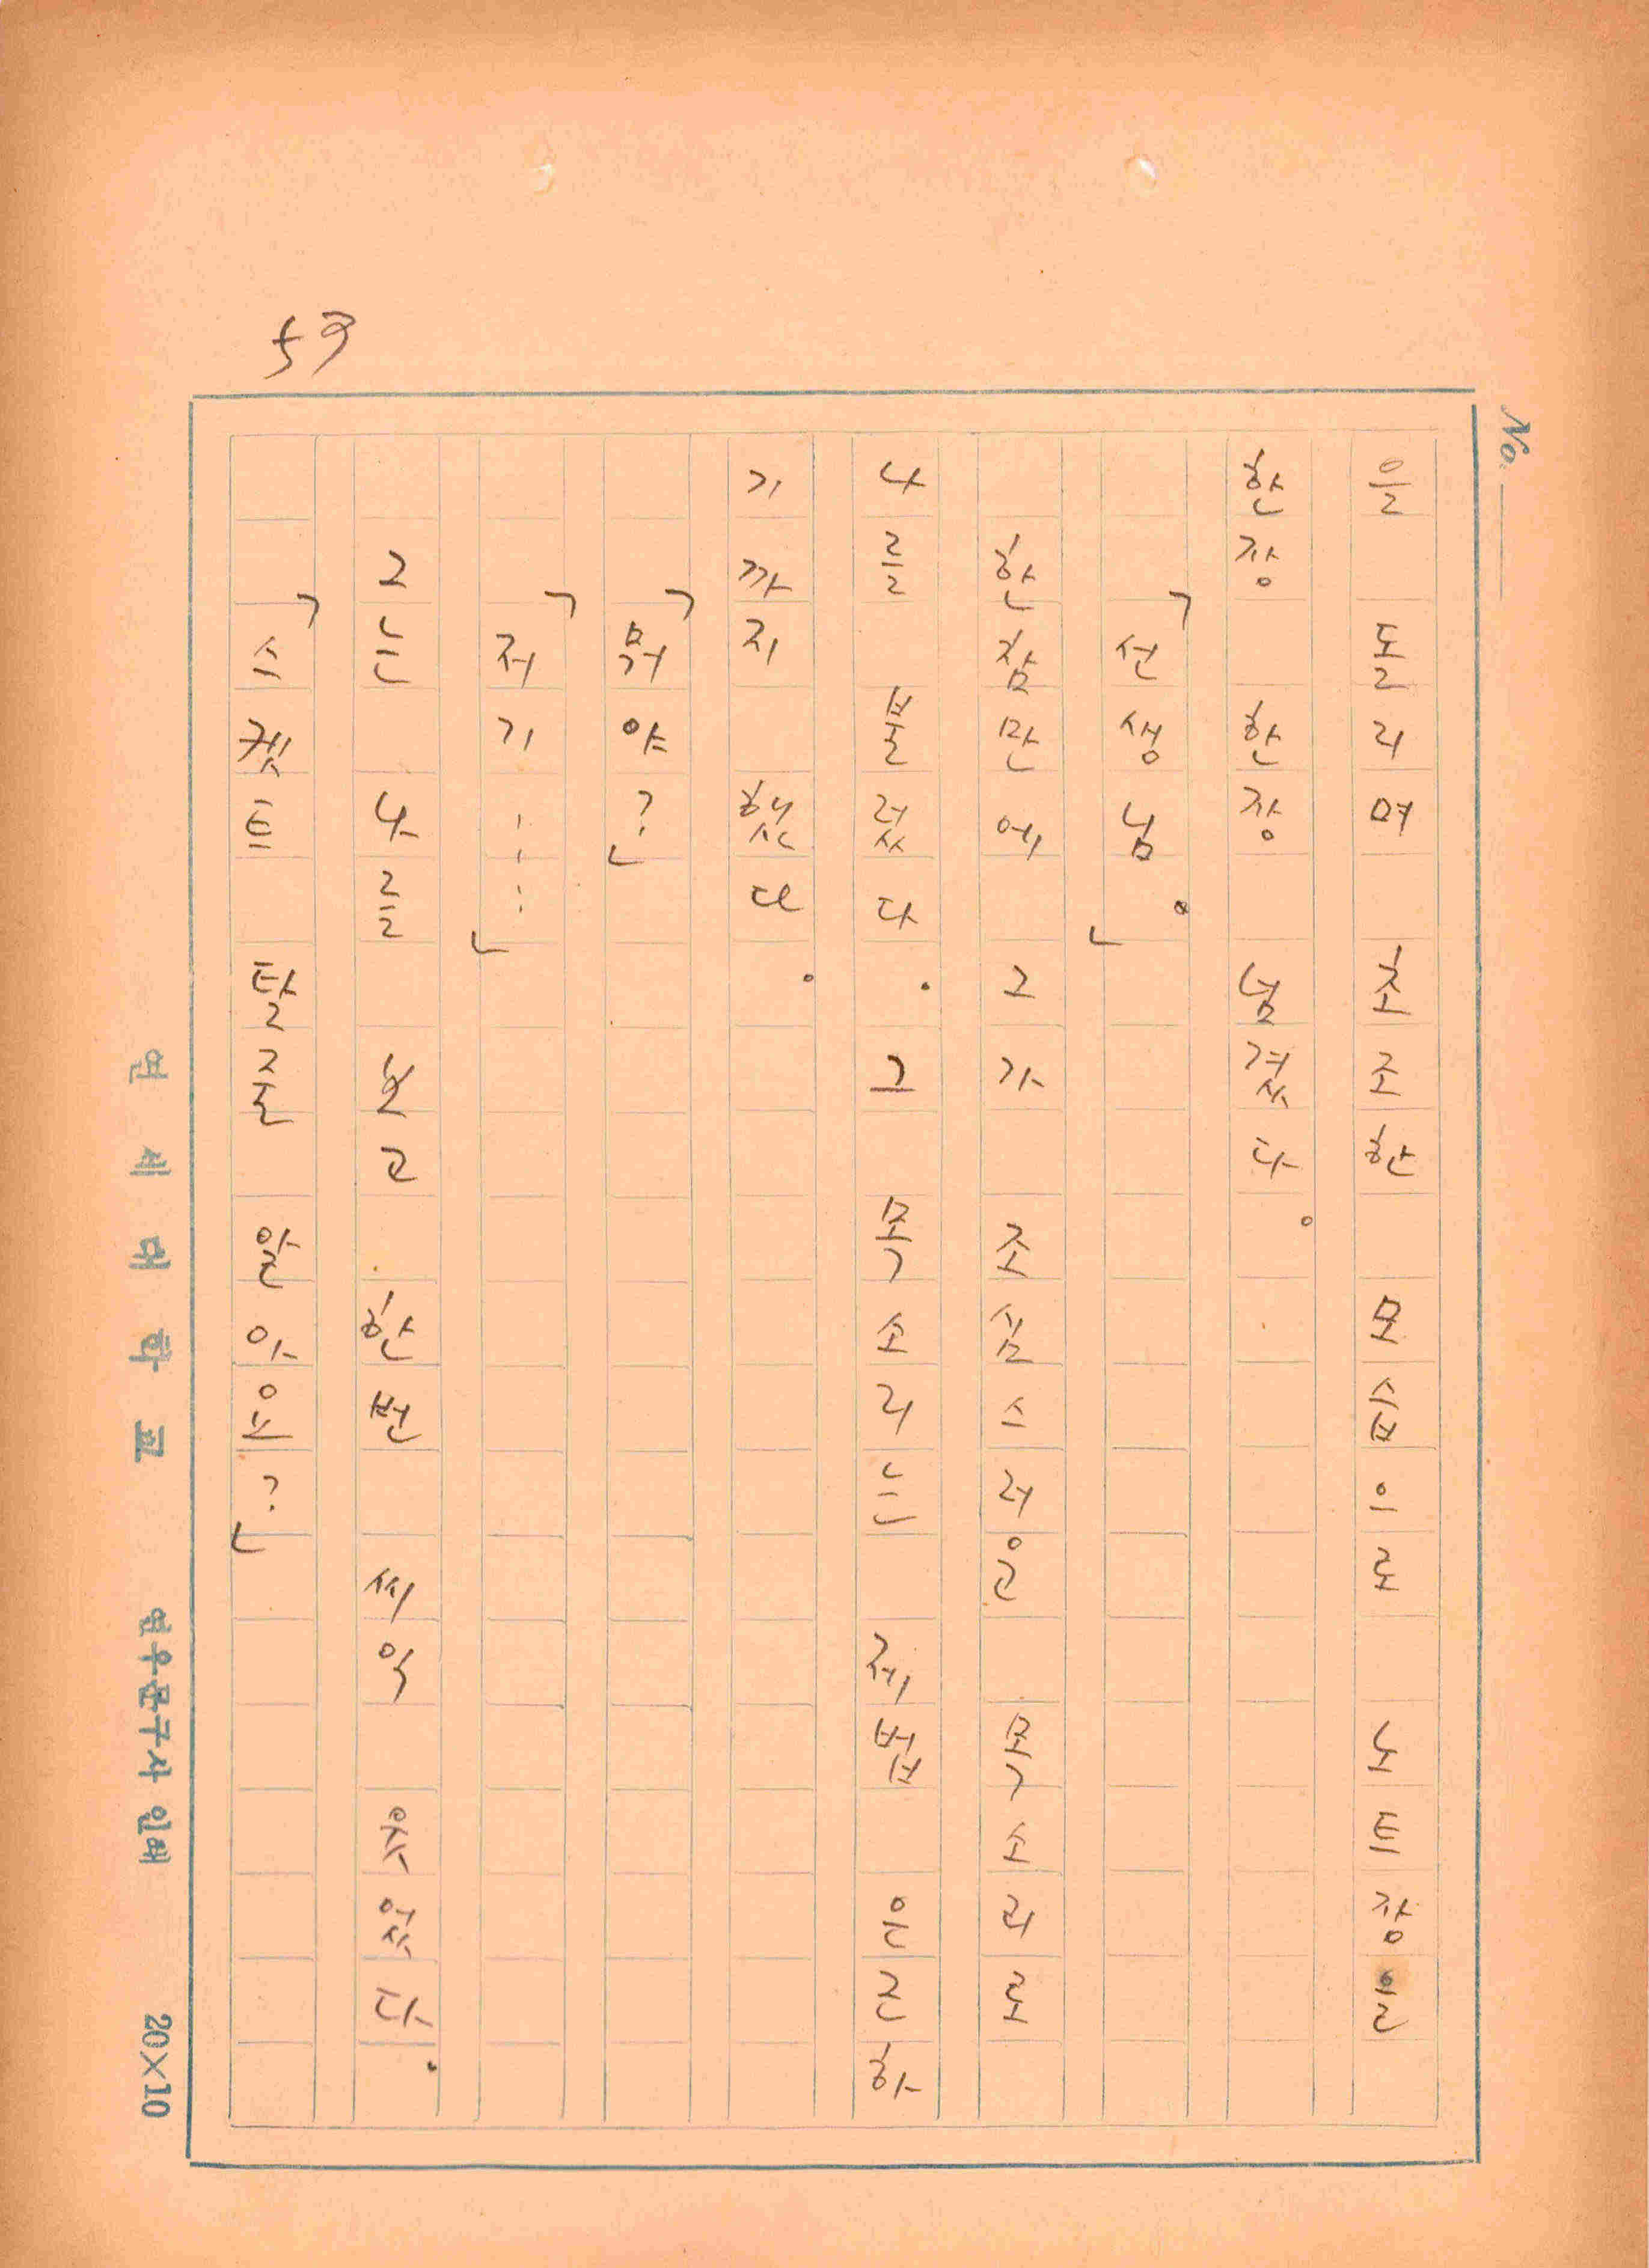 No.
59
을 돌리며 초조한 모습으로 노트장을
한장 한장 넘겼다。
「선생님。」
한참만에 그가 조심스러운 목소리로
나를 불렀다. 그 목소리는 제법 은근하
기까지 했다。
「뭐야?」
「저기……」
그는 나를 보고 한번 씨익 웃었다.
「스켓트 탈줄 알아요?」
연세대학교 연우문구사 인쇄 20×10